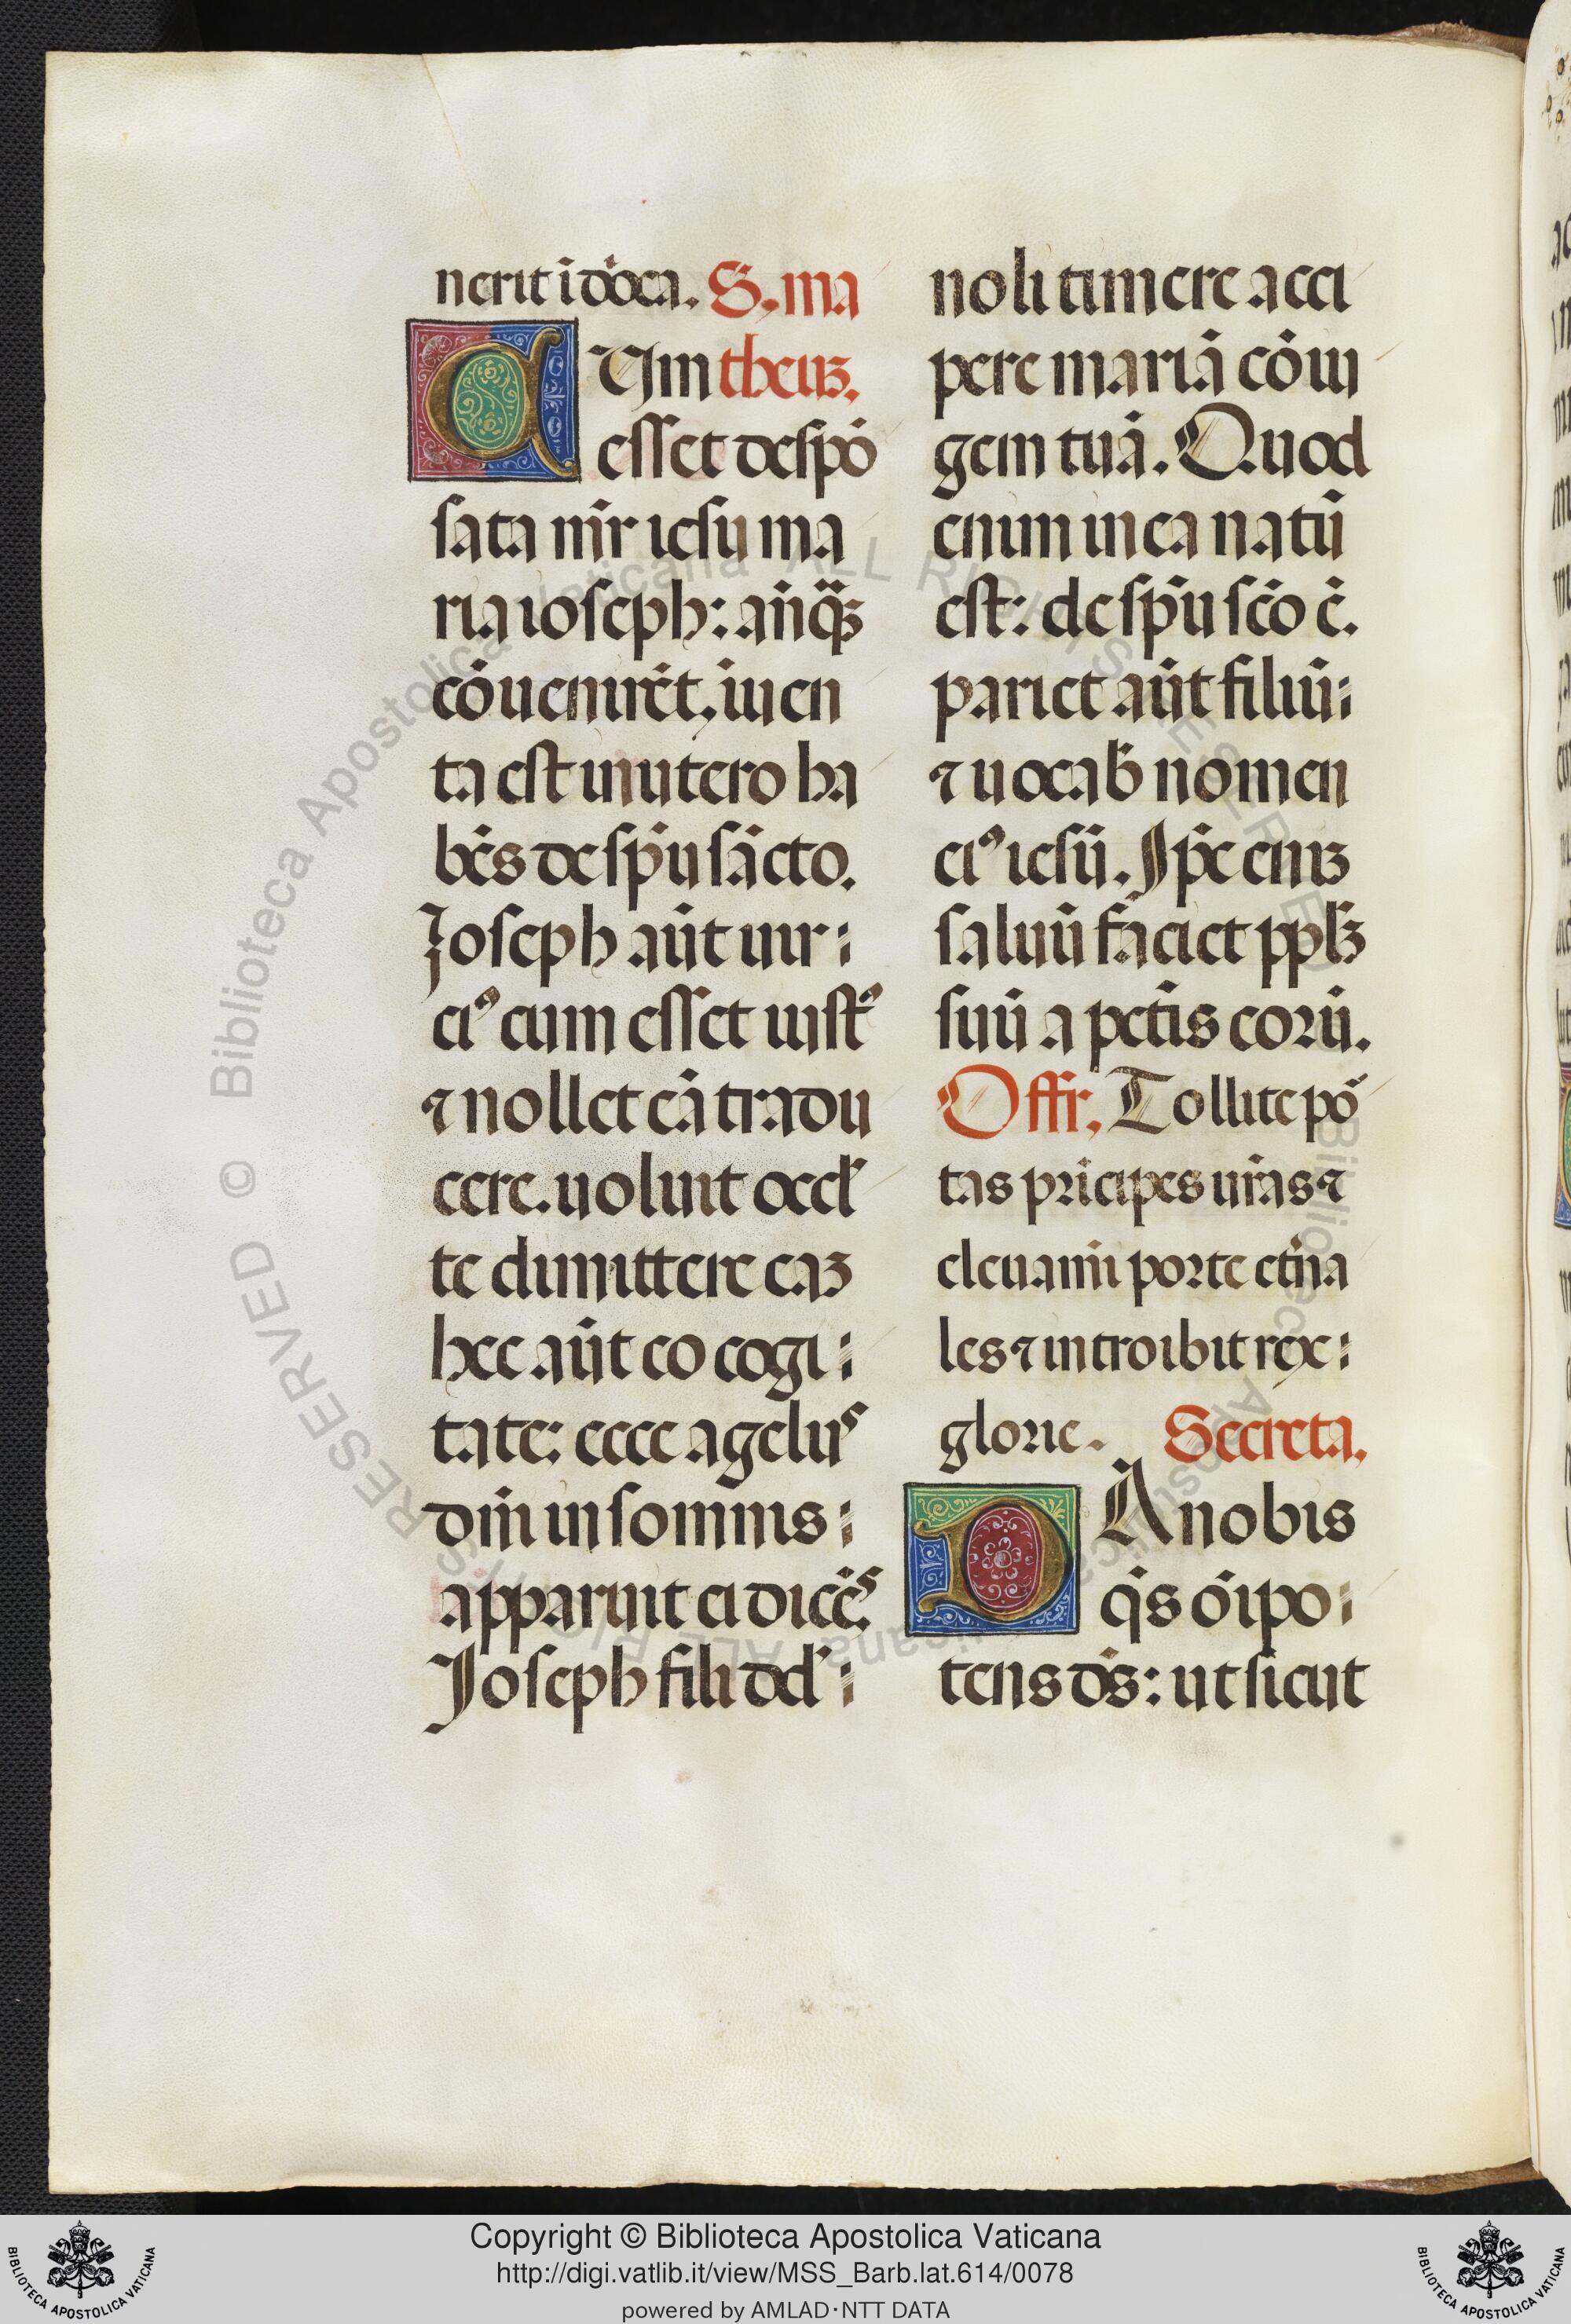 nerit ī dōca. S. ma
CUm theuʒ.
esset despō
sata mr̄ iesu ma
ria ioseph: an̄q̄ʒ
cōuenirēt, īuen
ta est in utero ha
bēs de spū sācto.
Ioseph aūt uir:
ei⁹ cum esset iust⁹
⁊ nollet eā tradu
cere. uoluit occl̄
te dimittere eaʒ
hec aūt eo cogi:
tāte: ecce āgelus
dn̄i in somnis:
apparuit ei dicēs.
Ioseph fili dd̄:
noli timere acci
pere mariā cōiu
gem tuā. Quod
enim in ea natū
est: de spū sc̄o ē.
pariet aūt filiū:
⁊ uocab̄ nomen
ei⁹ iesū. Ip̄e eniʒ
saluū faciet pplʒ̄
suū a pctīs eorū.
Offr. Tollite pō
tas prīcipes ur̄as ⁊
eleuamī porte etn̄a
les ⁊ introibit rex:
glorie. Secreta.
DA nobis
q̄s oīpo:
tens ds̄: ut sicut
Copyright © Biblioteca Apostolica Vaticana
http://digi.vatlib.it/view/MSS_Barb.lat.614/0078
powered by AMLAD·NTT DATA
BIBLIOTECA APOSTOLICA VATICANA
BIBLIOTECA APOSTOLICA VATICANA